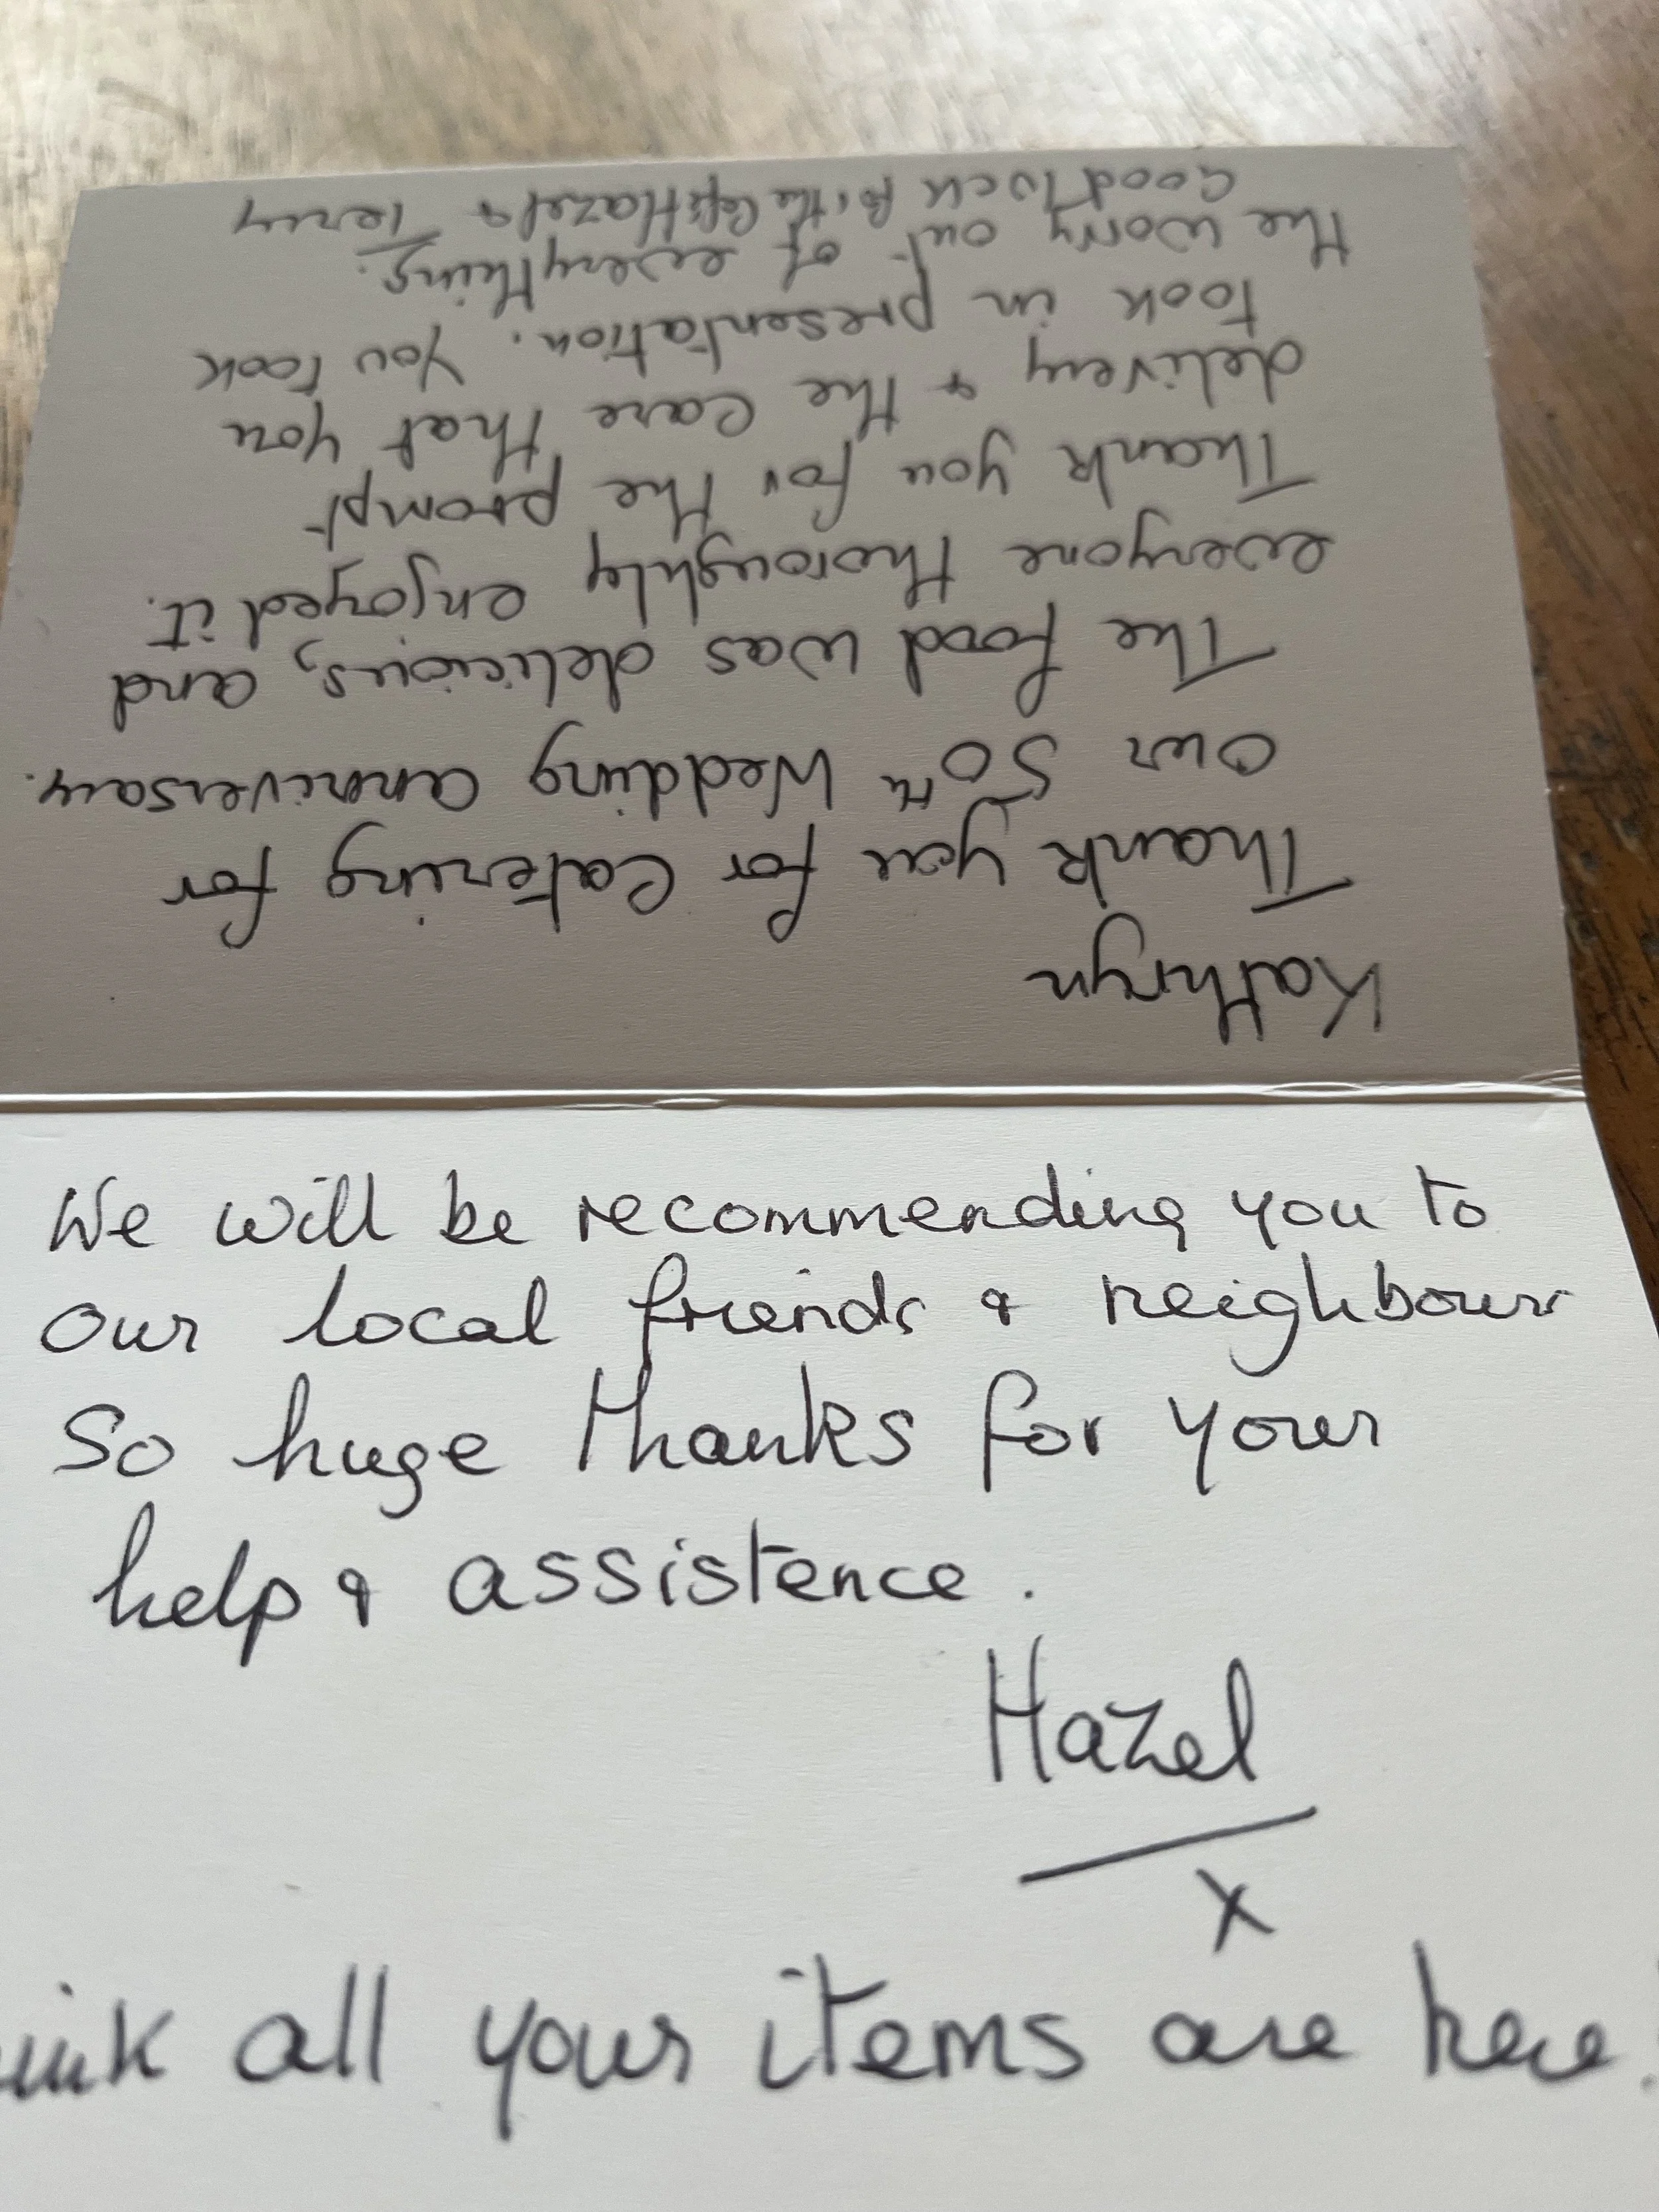 Kathryn
Thank you for Catering for
our 50TH Wedding anniversary.
The food was delicious, and
everyone thoroughly enjoyed it.
Thank you for the prompt
delivery & the care that you
took in presentation. You took
the worry out of everything.
Good luck for the Hazel & Terry
We will be recommending you to
our local friends & neighbours
So huge thanks for your
help & assistence.
Hazel
x
all your items are here